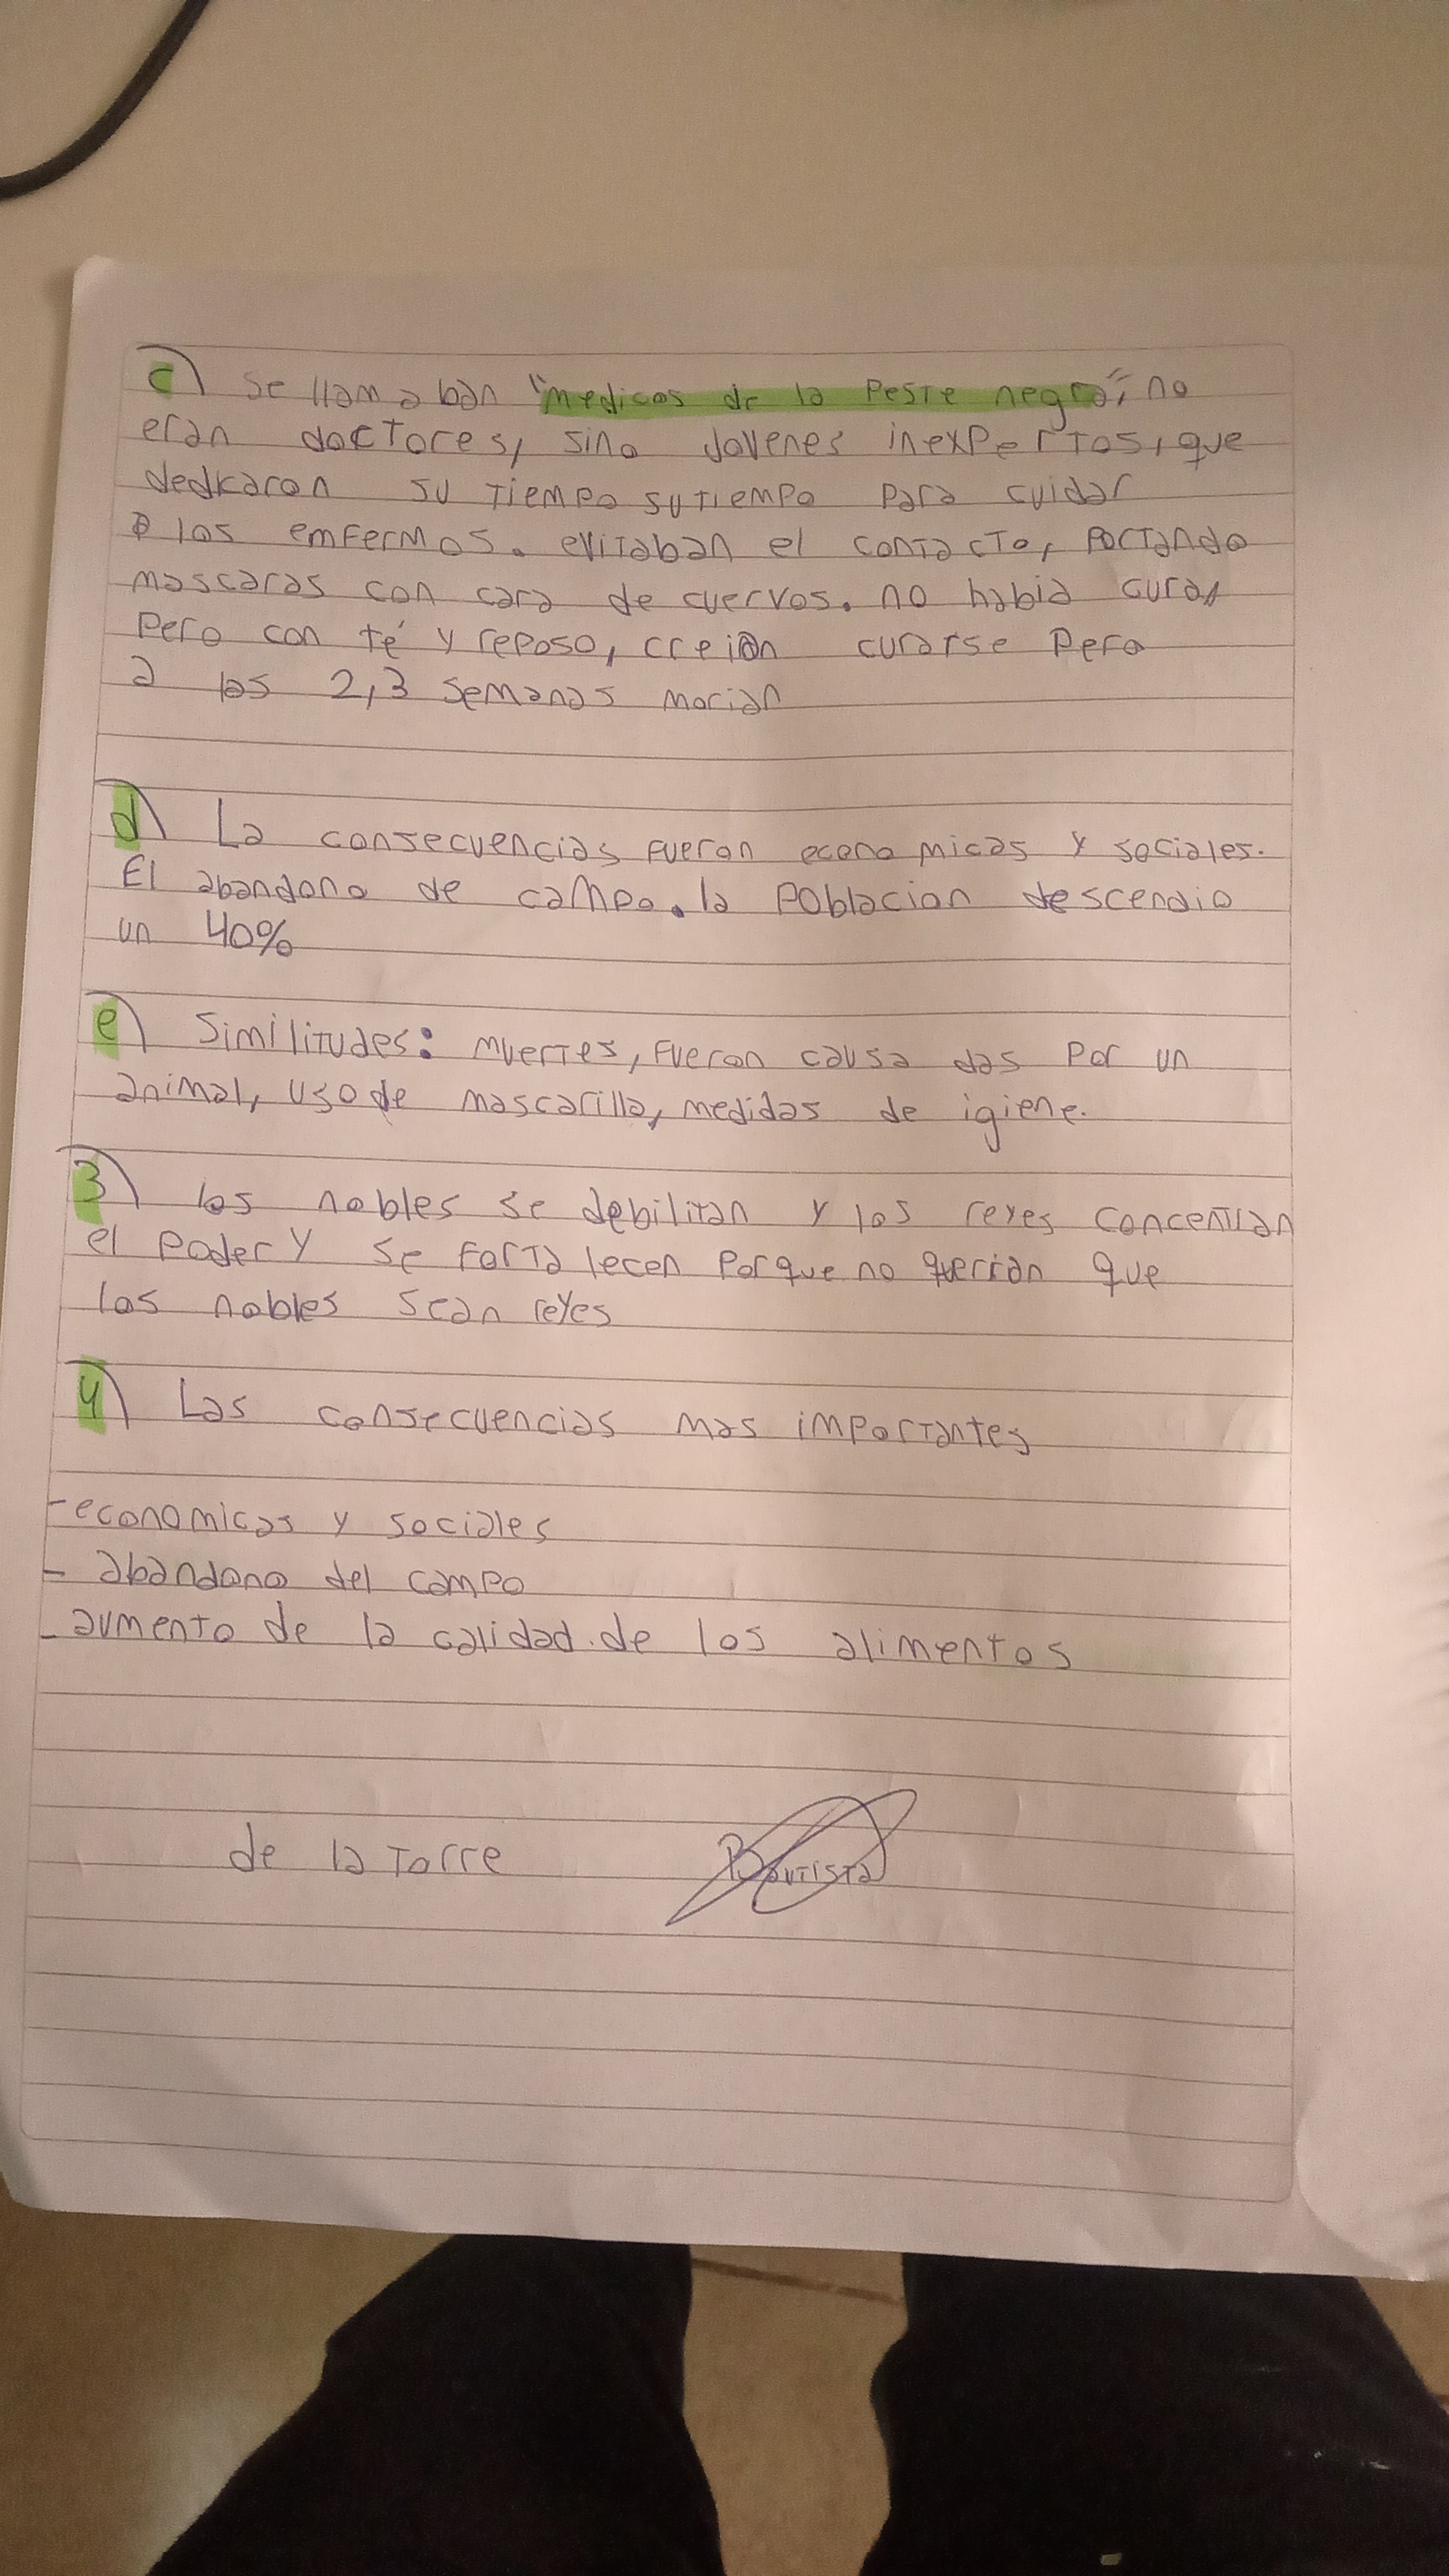 c) se llamaban "medicos de la Peste negra", no
eran doctores, sino Jovenes inexpertos, que
dedicaron su tiempo su tiempo para cuidar
a los enfermos. evitaban el contacto, Portando
mascaras con cara de cuervos. no habia cura,
Pero con té y reposo, creian curarse Pero
a las 2,3 semanas morian
d) La consecuencias fueron economicas y sociales.
El abandono de campo. la Poblacion descendio
un 40%
e) Similitudes: muertes, fueron causadas Por un
animal, uso de mascarilla, medidas de igiene.
3) los nobles se debilitan y los reyes concentran
el Poder y se fortalecen Porque no querian que
los nobles sean reyes
4) Las consecuencias mas importantes
- economicas y sociales
- abandono del campo
- aumento de la calidad de los alimentos
de la Torre Bautista